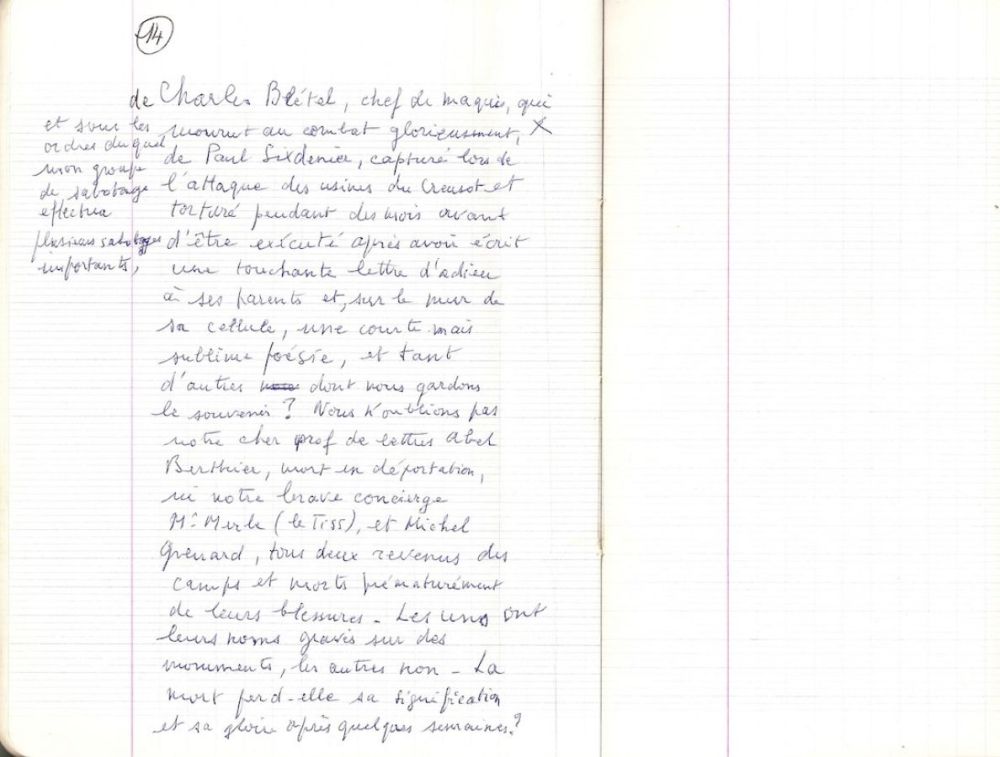 14
de Charles Blétel, chef de maquis, qui
mourut au combat glorieusement, X
et sous les
ordres duquel
mon groupe
de sabotage
effectua
plusieurs sabotages
importants,
de Paul Sixdenier, capturé lors de
l'attaque des usines du Creusot et
torturé pendant des mois avant
d'être exécuté après avoir écrit
une touchante lettre d'adieu
à ses parents et, sur le mur de
sa cellule, une courte mais
sublime poésie, et tant
d'autres dont nous gardons
le souvenir ? Nous n'oublions pas
notre cher prof de lettres Abel
Berthier, mort en déportation,
ni notre brave concierge
Mr Merle (le Tiss), et Michel
Grenard, tous deux revenus des
camps et morts prématurément
de leurs blessures - Les uns ont
leurs noms gravés sur des
monuments, les autres non - La
mort perd-elle sa signification
et sa gloire après quelques semaines ?